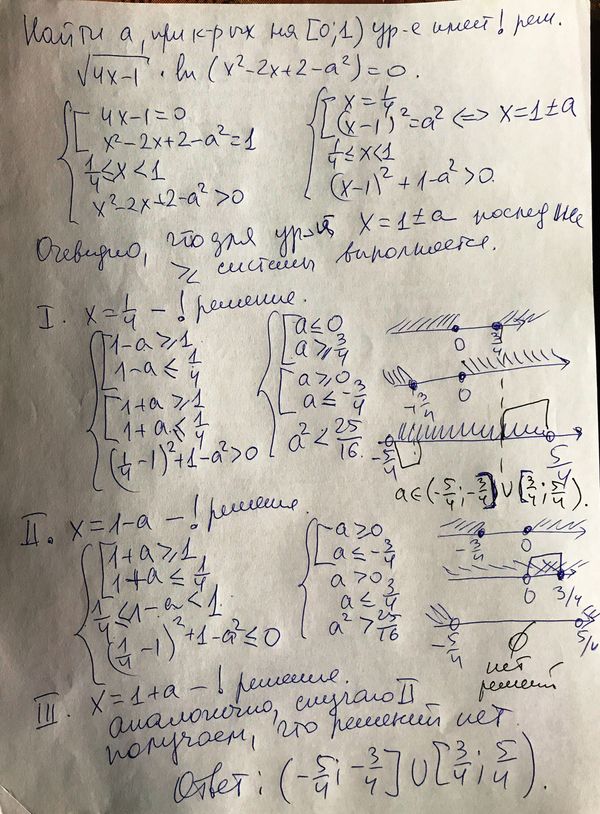 Найти a, при к-рых на [0;1) ур-е имеет ! реш.
√(4x-1) · ln (x²-2x+2-a²) = 0.
{ [ 4x-1=0
x²-2x+2-a²=1
1/4 ≤ x < 1
x²-2x+2-a²>0
{ [ x=1/4
(x-1)²=a² <=> x=1±a
1/4 ≤ x < 1
(x-1)²+1-a²>0.
Очевидно, что для ур-ий x=1±a последнее
≥ системы выполняется.
I. x=1/4 - ! решение.
{ [ 1-a ≥ 1
1-a ≤ 1/4
[ 1+a ≥ 1
1+a ≤ 1/4
(1/4-1)²+1-a²>0
{ [ a ≤ 0
a ≥ 3/4
[ a ≥ 0
a ≤ -3/4
a² < 25/16.
0 3/4
-3/4 0
-5/4 5/4
a∈(-5/4; -3/4] ∪ [3/4; 5/4).
II. x=1-a - ! решение.
{ [ 1+a ≥ 1
1+a ≤ 1/4
1/4 ≤ 1-a < 1
(1/4-1)²+1-a² ≤ 0
{ [ a ≥ 0
a ≤ -3/4
a > 0
a ≤ 3/4
a² > 25/16
-3/4 0
0 3/4
-5/4 5/4
∅
нет
решений
III. x=1+a - ! решение.
аналогично, случаю II
получаем, что решений нет.
Ответ: (-5/4; -3/4] ∪ [3/4; 5/4).